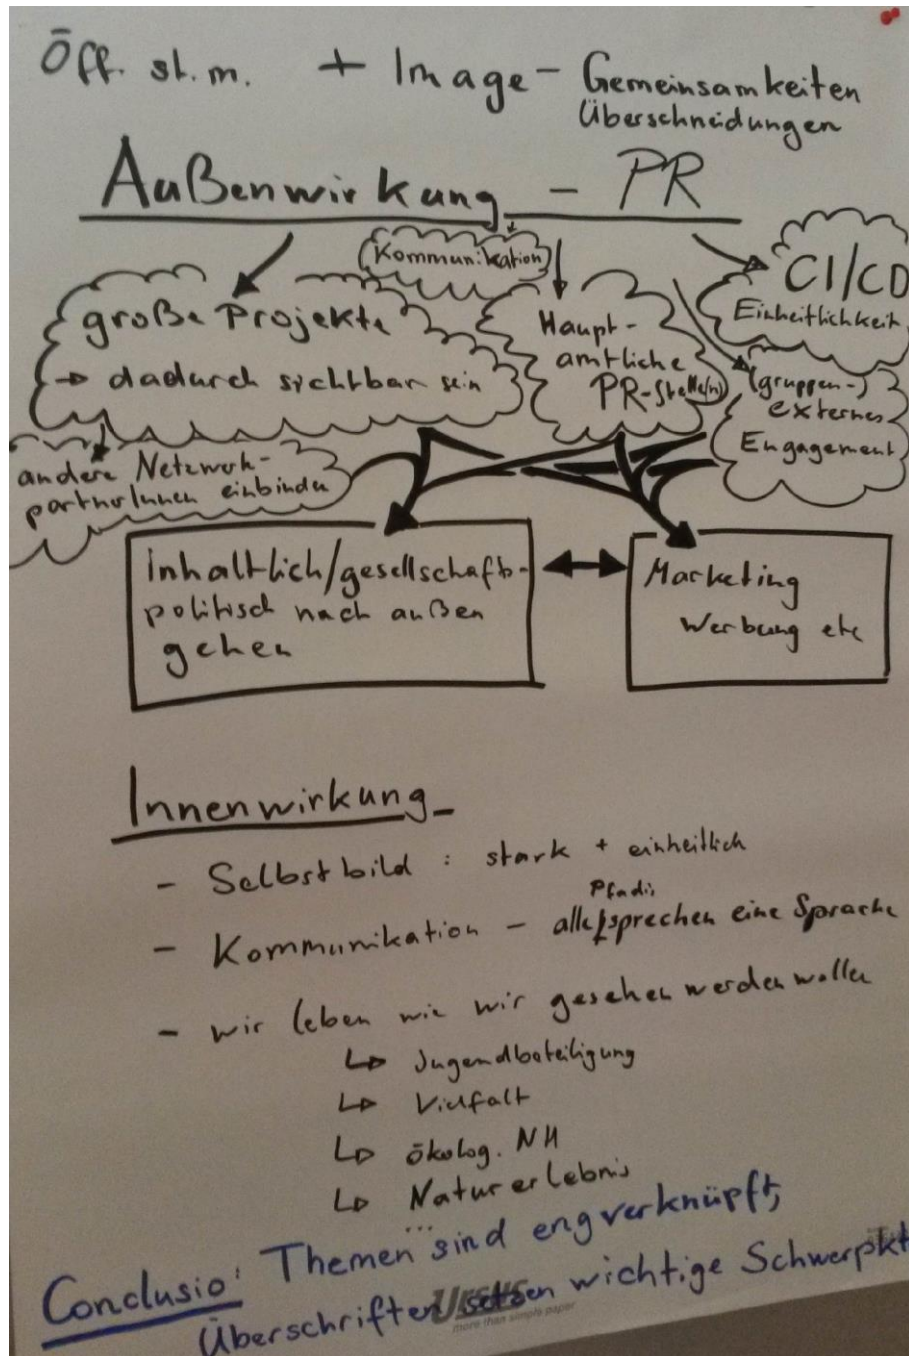 Öff. st. m. + Image - Gemeinsamkeiten
Überschneidungen
Außenwirkung - PR
Kommunikation
CI/CD
Einheitlichkeit
große Projekte
→ dadurch sichtbar sein
Haupt-
amtliche
PR-Stelle(n)
(gruppen-)
externes
Engagement
andere Netzwerk-
partnerInnen einbinden
Inhaltlich/gesellschafts-
politisch nach außen
gehen
Marketing
Werbung etc
Innenwirkung
- Selbstbild : stark + einheitlich
- Kommunikation - alle Pfadis sprechen eine Sprache
- wir leben wie wir gesehen werden wollen
↳ Jugendbeteiligung
↳ Vielfalt
↳ ökolog. NH
↳ Naturerlebnis
...
Conclusio: Themen sind eng verknüpft,
Überschriften setzen wichtige Schwerpkt
Ursus
more than simple paper